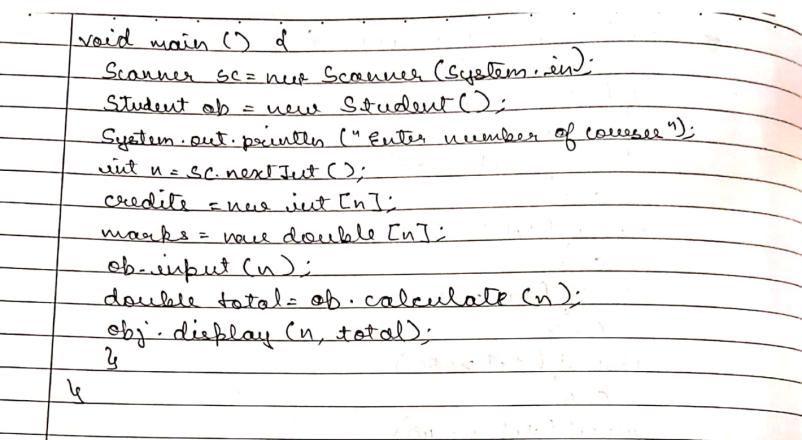 void main () {
Scanner sc = new Scanner (System.in);
Student ob = new Student ();
System.out.println ("Enter number of courses");
int n = sc.nextInt ();
credits = new int [n];
marks = new double [n];
ob.input (n);
double total = ob.calculate (n);
obj.display (n, total);
}
}